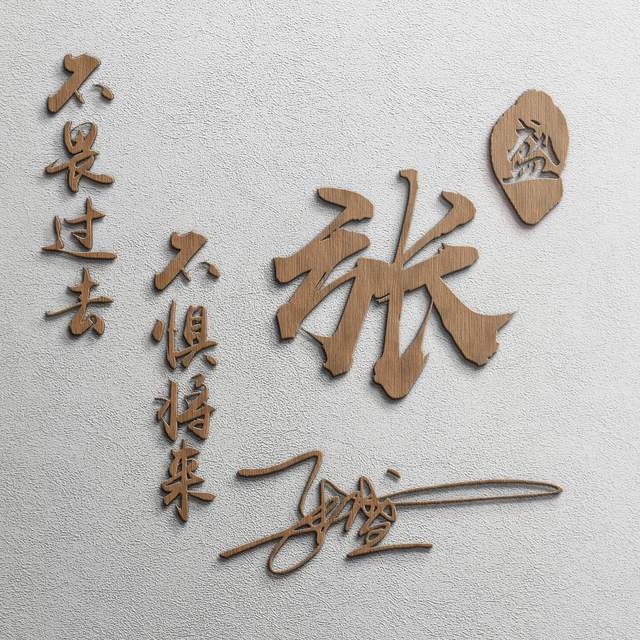 不畏过去
不惧将来
张
盛